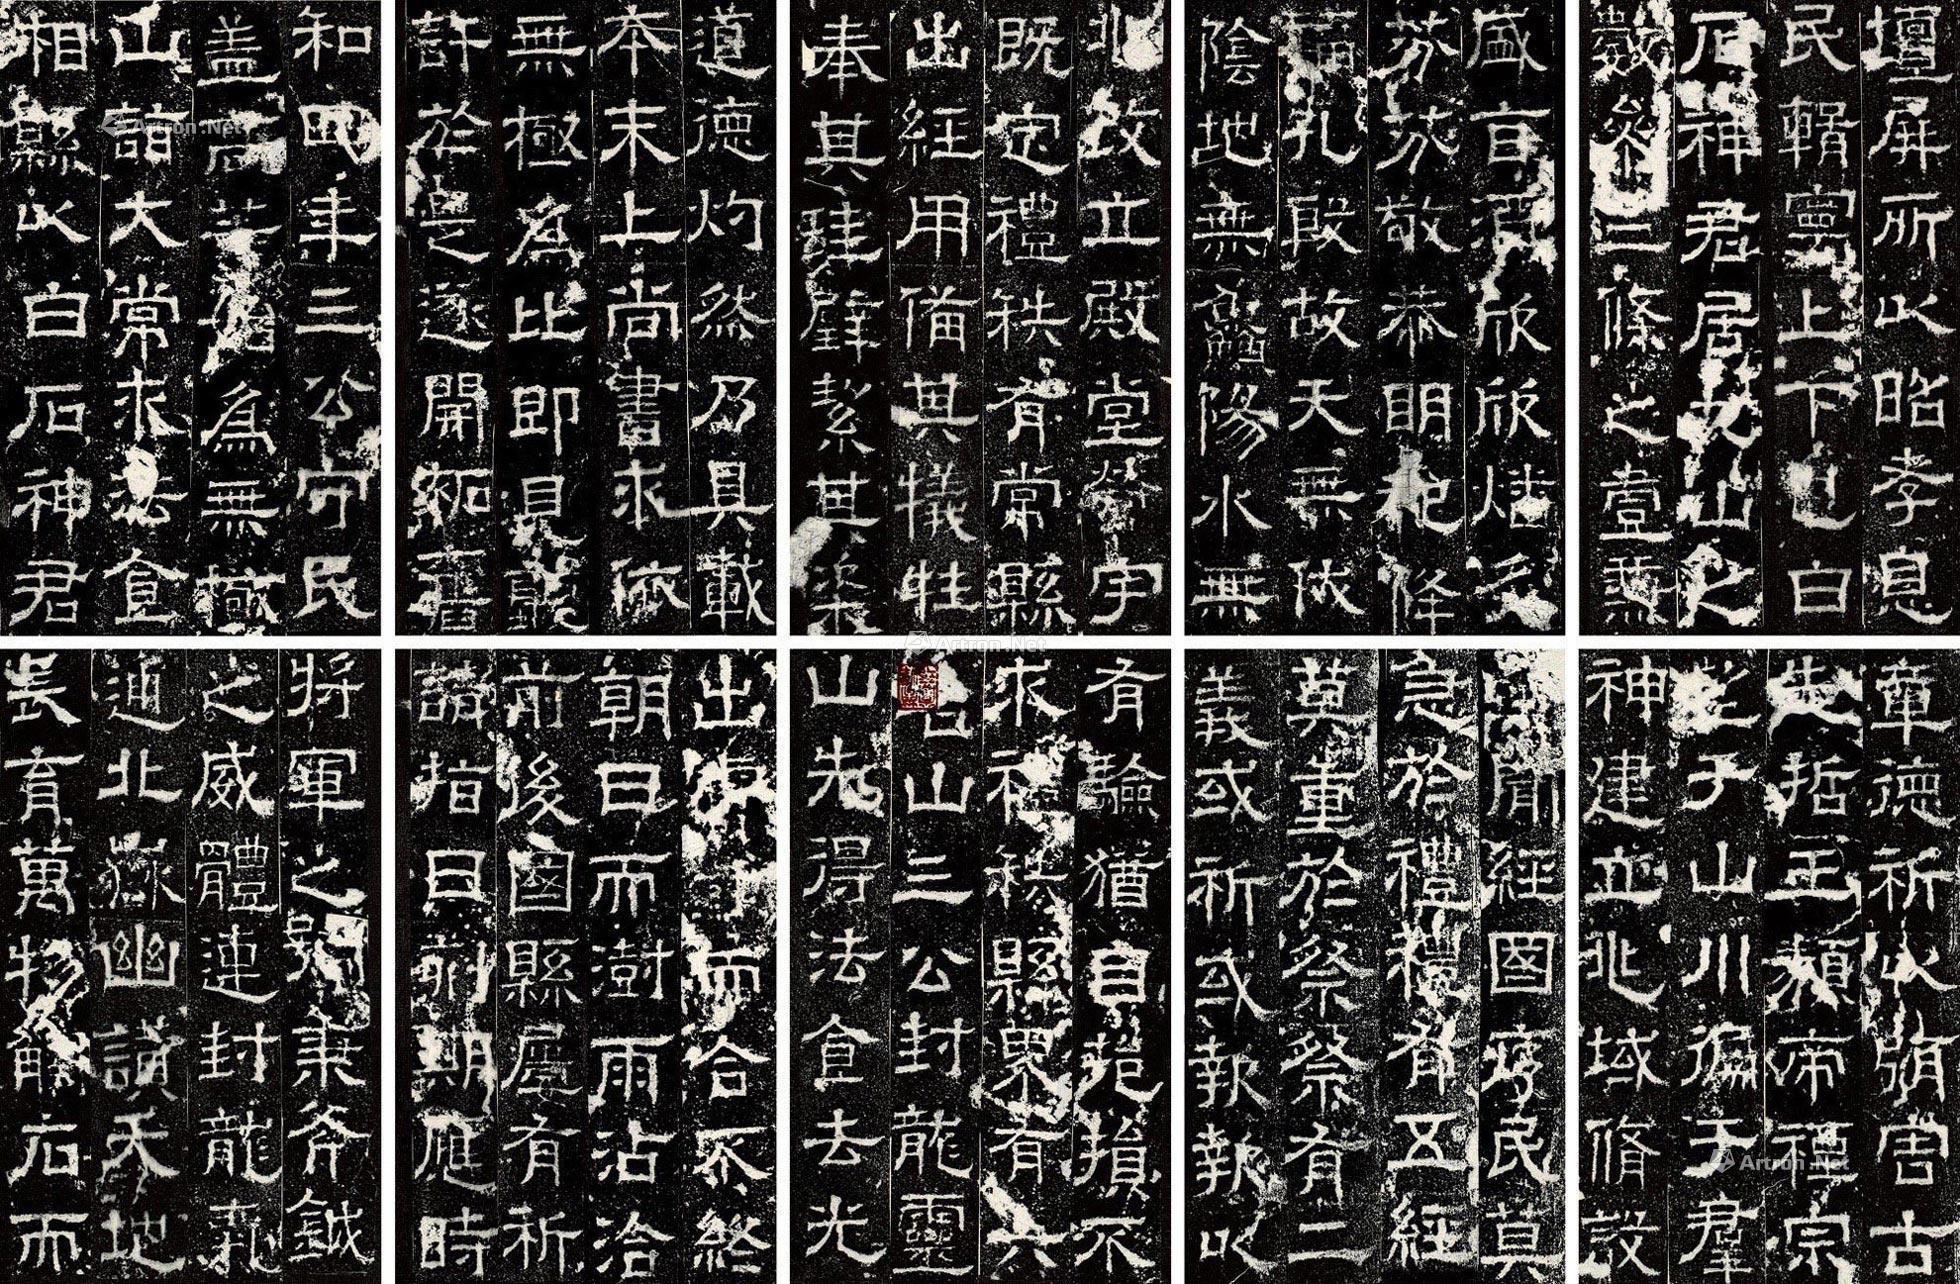 壇屏所以昭孝息
民輯寧上下也白
石神君居九山之
數參三條之壹兼
盛旨酒欣欣燔炙
芬芬敬恭明祀降
福孔殷故天無伏
陰地無鮮陽水無
兆改立殿堂營宇
既定禮秩有常縣
出經用備其犧牲
奉其珪璧絜其粢
道德灼然乃具載
本末上尚書求依
無極為比即見聽
許於是遂開拓舊
和四年三公守民
蓋高等始為無極
山詣大常求法食
相縣以白石神君
章德祈以弭害古
先哲王類帝禋宗
望于山川徧于群
神建立兆域脩設
蓋聞經國序民莫
急於禮禮有五經
莫重於祭祭有二
義或祈或報報以
有驗猶自挹損不
求禮秩縣界有六
名山三公封龍靈
山先得法食去光
出膚寸而合不終
朝日而澍雨沾洽
前後國縣屢有祈
請指日刻期應時
將軍之號秉斧鉞
之威體連封龍氣
通北嶽幽讚天地
長育萬物觸石而
Artron.Net
Artron.Net
Artron.Net